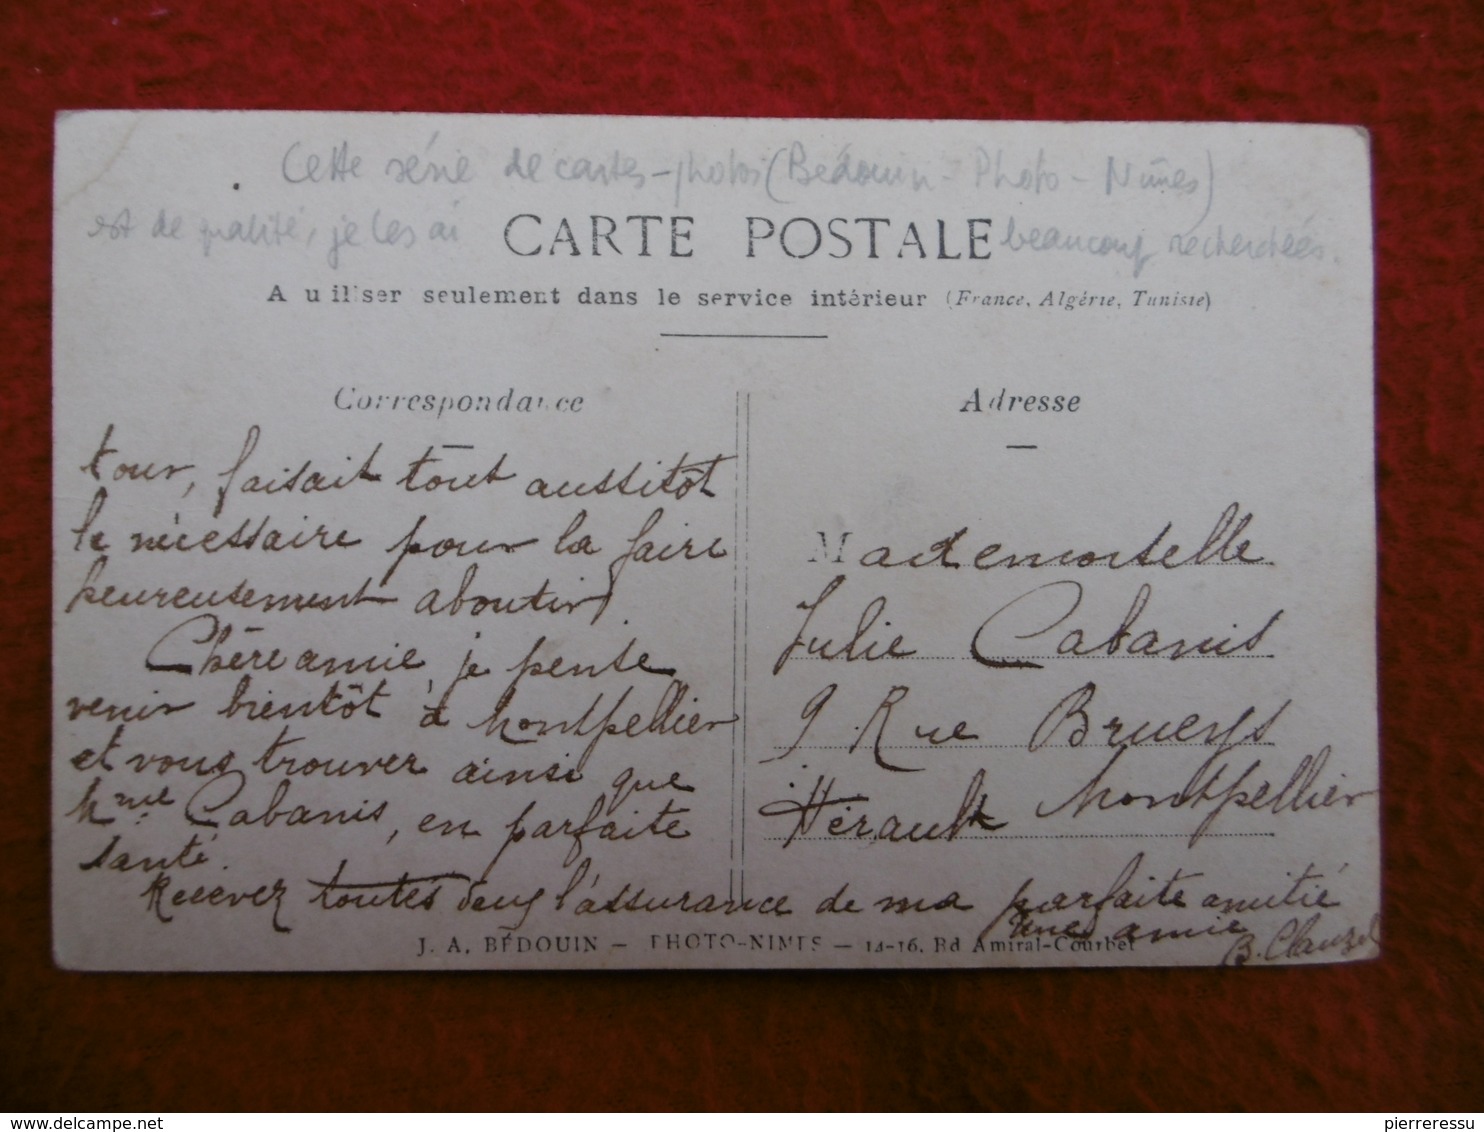 Cette série de cartes-photos (Bédouin - Photo - Nîmes)
est de qualité, je les ai beaucoup recherchées.
CARTE POSTALE
A u iliser seulement dans le service intérieur (France, Algérie, Tunisie)
Correspondance
tour, faisait tout aussitôt
le nécessaire pour la faire
heureusement aboutir.
Chère amie, je pense
venir bientôt à Montpellier
et vous trouver ainsi que
Mme Cabanis, en parfaite
santé.
Recevez toutes deux l'assurance de ma parfaite amitié
Une amie
B. Clauzel
Adresse
Mademoiselle
Julie Cabanis
9 Rue Brueys
Montpellier
Hérault
J. A. BÉDOUIN - PHOTO-NIMES - 14-16, Bd Amiral-Courbet
delcampe.net
pierreressu